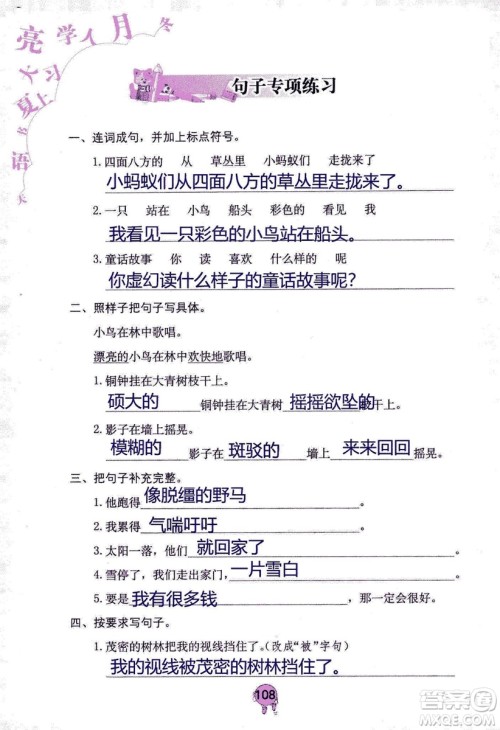 亮 学 人 月 冬
大 习
夏 上
书
语
天
句子专项练习
一、连词成句，并加上标点符号。
1. 四面八方的 从 草丛里 小蚂蚁们 走拢来了
小蚂蚁们从四面八方的草丛里走拢来了。
2. 一只 站在 小鸟 船头 彩色的 看见 我
我看见一只彩色的小鸟站在船头。
3. 童话故事 你 读 喜欢 什么样的 呢
你虚幻读什么样子的童话故事呢?
二、照样子把句子写具体。
小鸟在林中歌唱。
漂亮的小鸟在林中欢快地歌唱。
1. 铜钟挂在大青树枝干上。
硕大的 铜钟挂在大青树 摇摇欲坠的 枝干上。
2. 影子在墙上摇晃。
模糊的 影子在 斑驳的 墙上 来来回回 摇晃。
三、把句子补充完整。
1. 他跑得 像脱缰的野马
2. 我累得 气喘吁吁
3. 太阳一落，他们 就回家了
4. 雪停了，我们走出家门， 一片雪白
5. 要是 我有很多钱 ，那一定会
四、按要求写句子。
1. 茂密的树林把我的视线挡住了。（改成“被”字句）
我的视线被茂密的树林挡住了。
108
答案圈
MXQE.COM